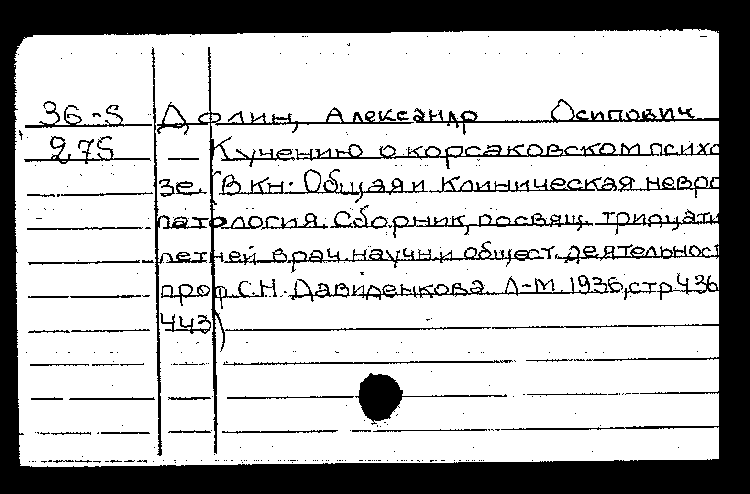 36-5 Долин, Александр Осипович
275 К учению о корсаковском психо
зе. (В кн: Общая и клиническая невро
патология. Сборник, посвящ. тридцати
летней врач. научн. и общест. деятельност
проф. С.Н. Давиденкова. Л-М. 1936, стр 436
443)